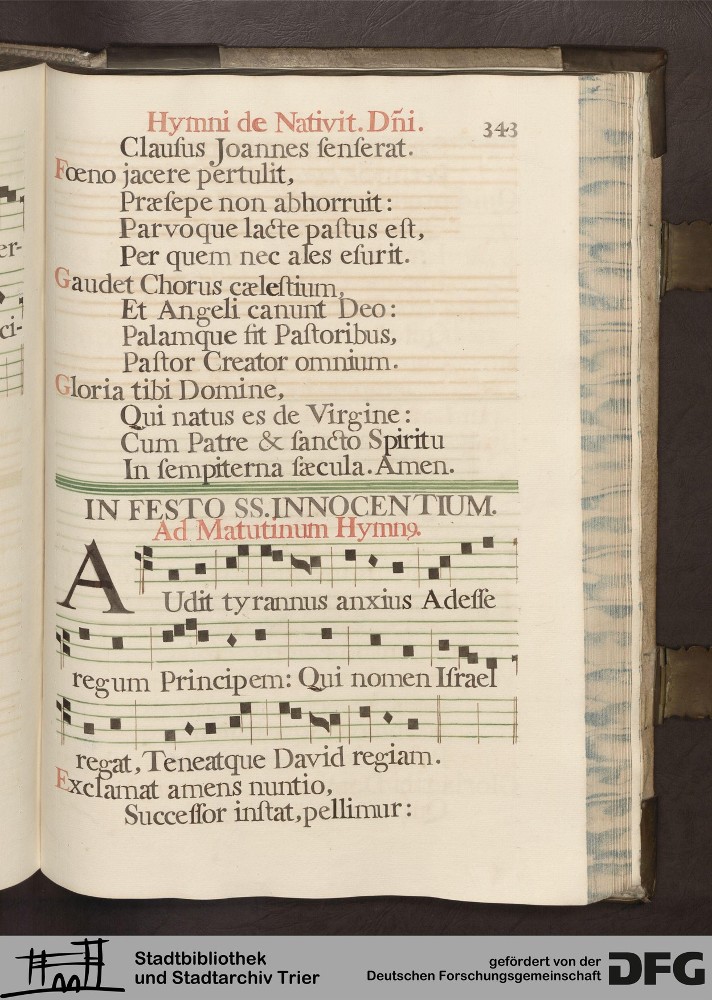 er-
ci-
Hymni de Nativit. Dñi.
343
Clauſus Joannes ſenſerat.
Fœno jacere pertulit,
Præſepe non abhorruit:
Parvoque lacte paſtus eſt,
Per quem nec ales eſurit.
Gaudet Chorus cæleſtium,
Et Angeli canunt Deo:
Palamque fit Paſtoribus,
Paſtor Creator omnium.
Gloria tibi Domine,
Qui natus es de Virgine:
Cum Patre & ſancto Spiritu
In ſempiterna ſæcula. Amen.
IN FESTO SS. INNOCENTIUM.
Ad Matutinum Hymnꝯ.
AUdit tyrannus anxius Adeſſe
regum Principem: Qui nomen Iſrael
regat, Teneatque David regiam.
Exclamat amens nuntio,
Succeſſor inſtat, pellimur:
Stadtbibliothek
und Stadtarchiv Trier
gefördert von der
Deutschen Forschungsgemeinschaft
DFG